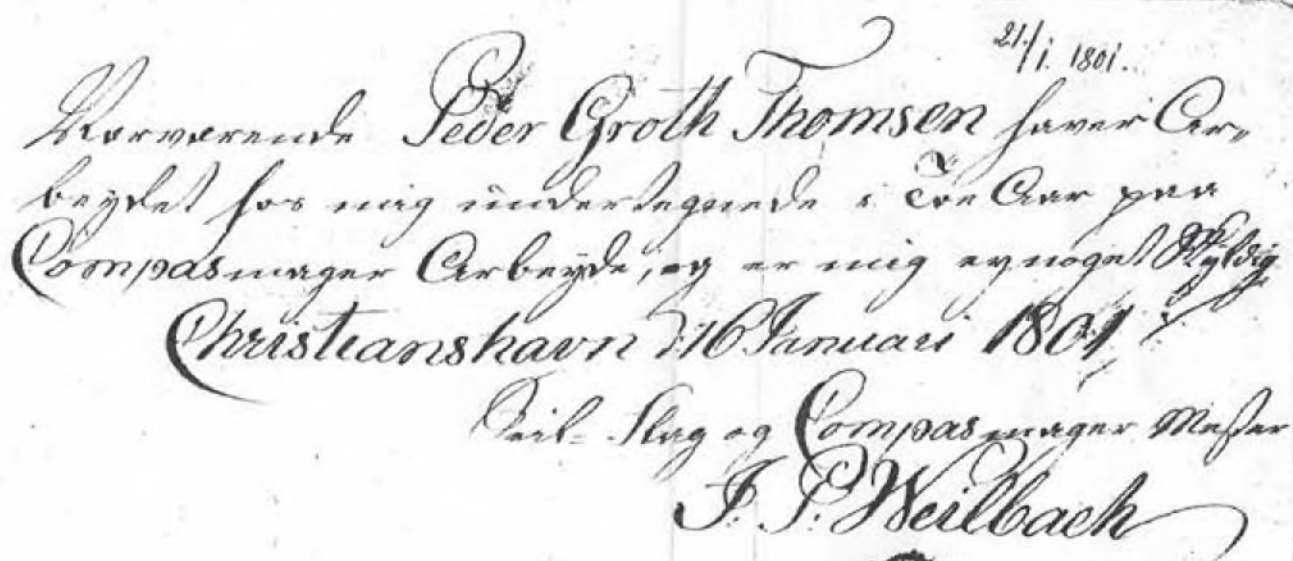 21./1. 1801.
Nærværende Peder Groth Thomsen haver Ar-
beydet hos mig undertegnede i Toe Aar paa
Compasmager Arbeyde, og er mig ey noget Skyldig
Christianshavn d: 16 Januari 1801
Seil- Flag og Compasmager Mester
I. P. Weilbach